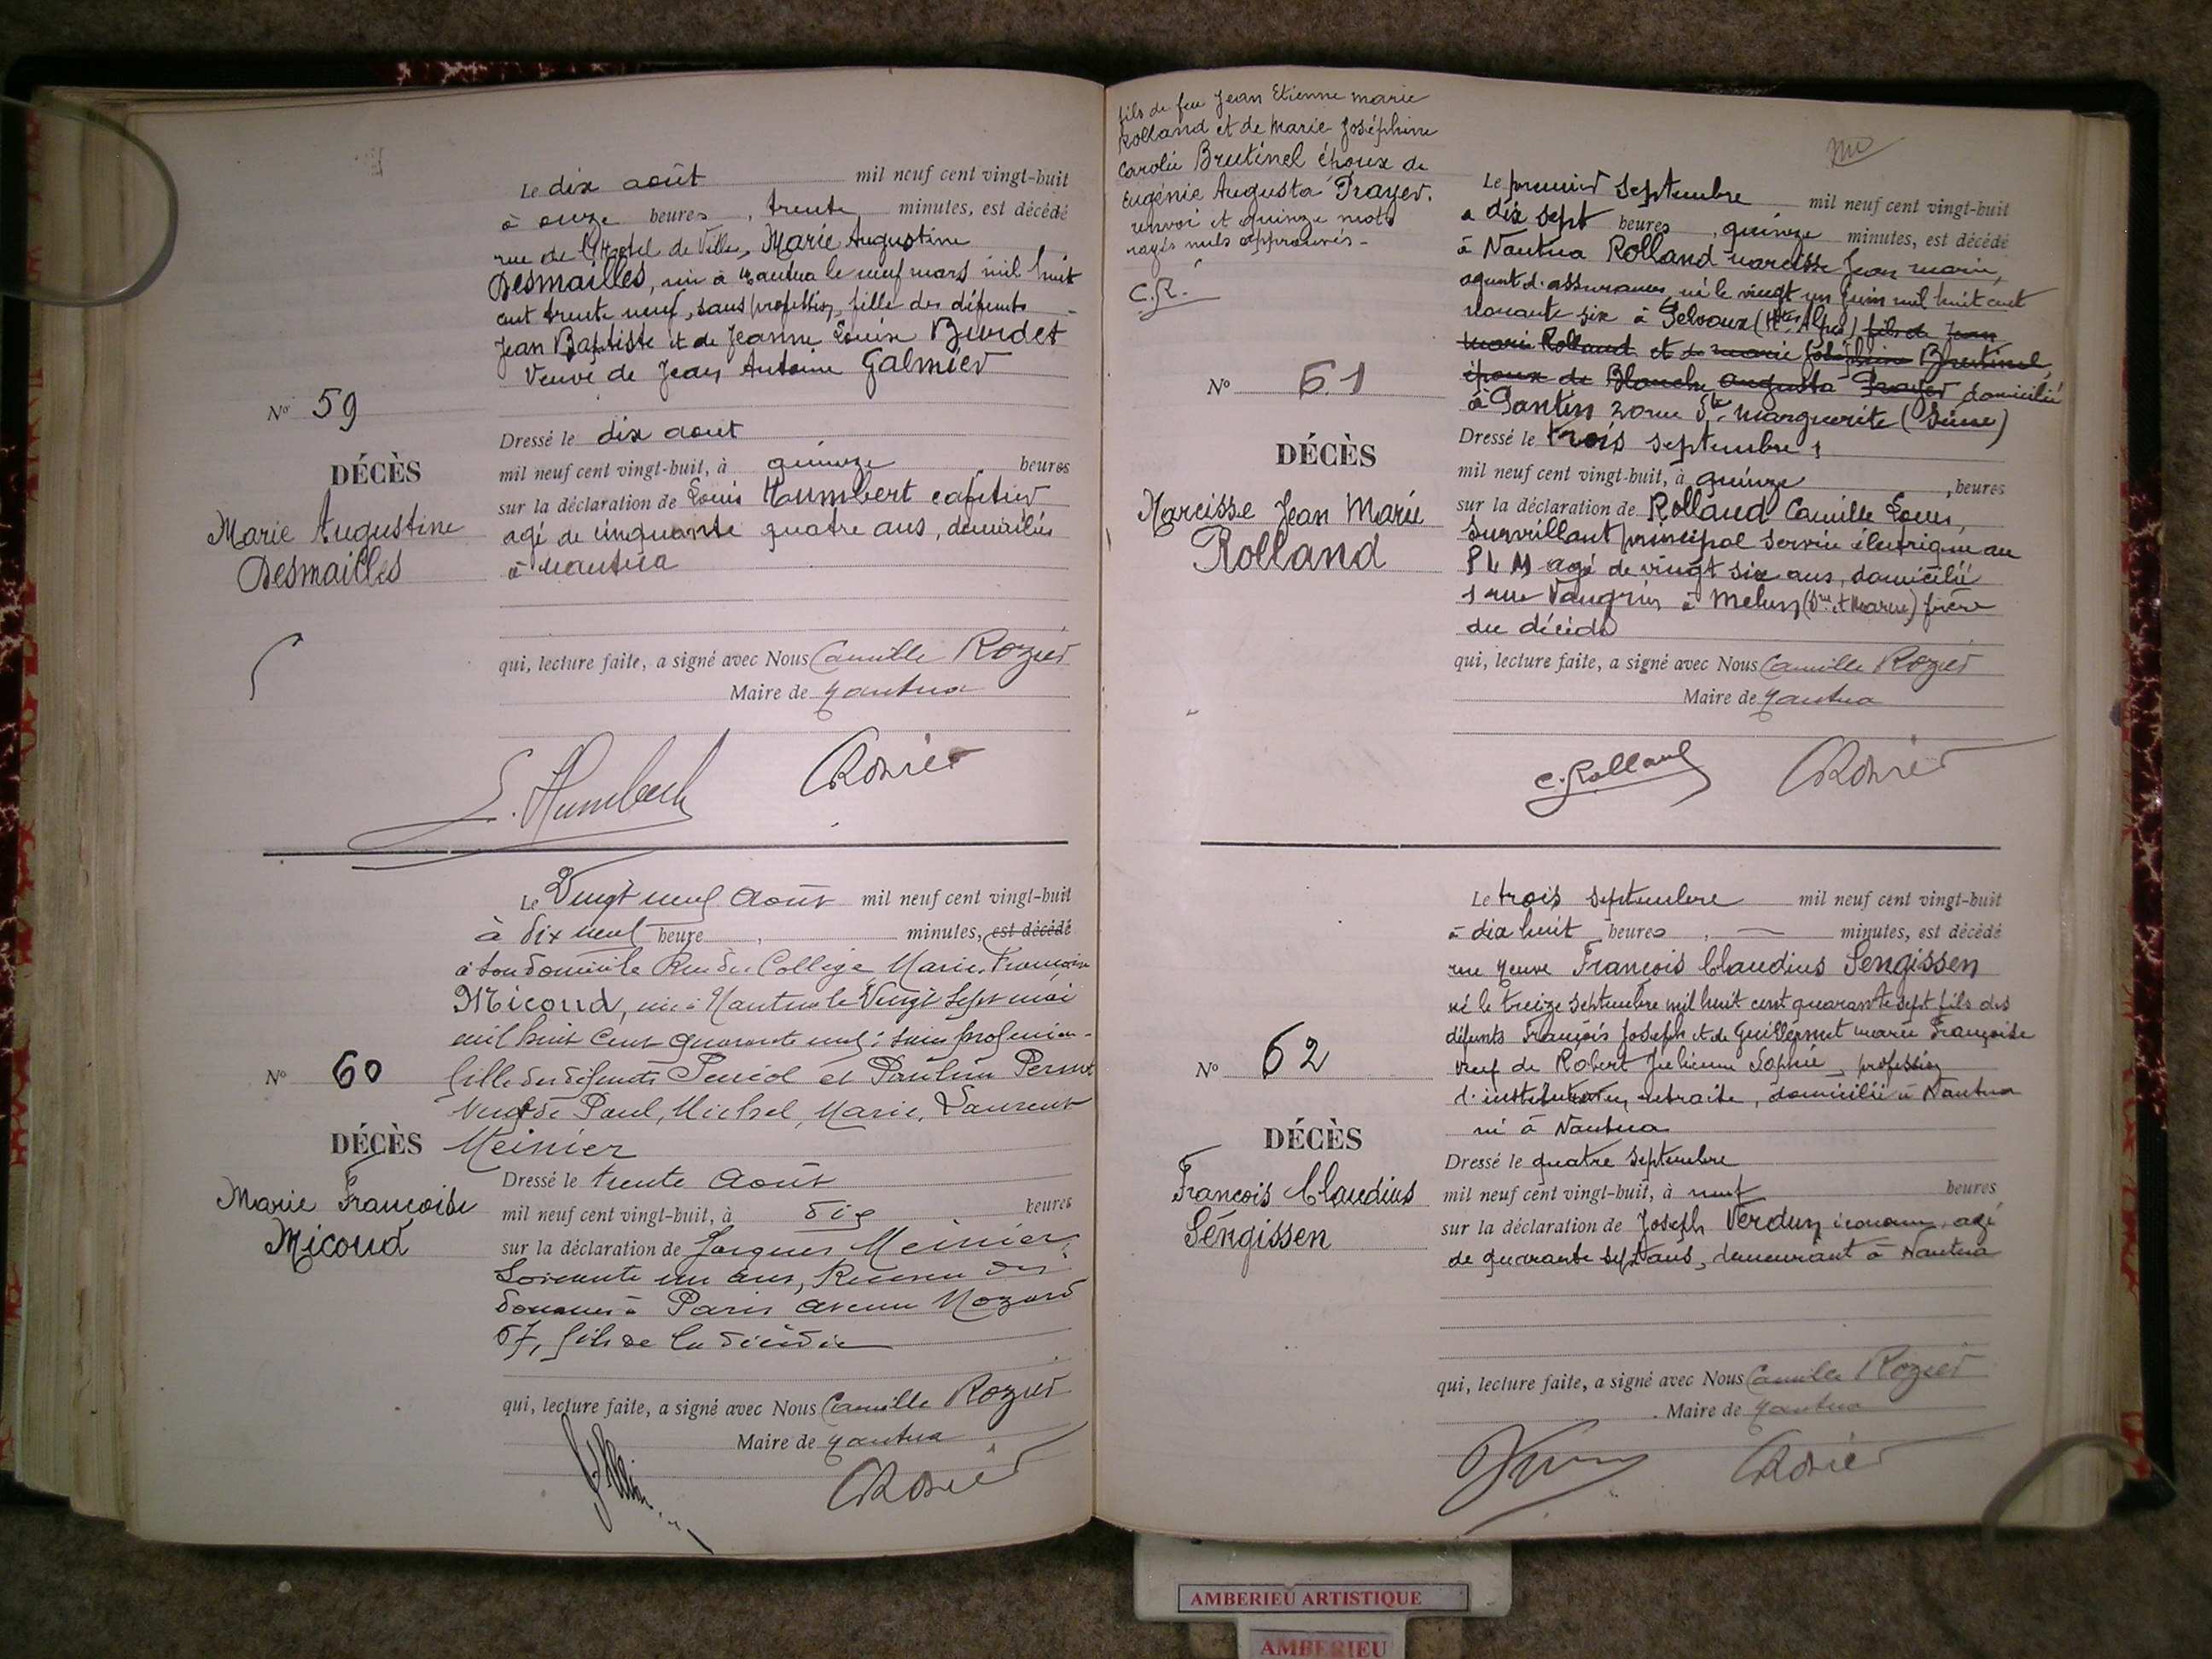 Le dix août mil neuf cent vingt-huit
à onze heures, trente minutes, est décédé
rue de l'Hôtel de Ville, Marie Augustine
Desmailles, née à Nantua le neuf mars mil huit
cent trente neuf, sans profession, fille des défunts
Jean Baptiste et de Jeanne Louise Burdet
Veuve de Jean Antoine Galmier
No 59
DÉCÈS
Marie Augustine
Desmailles
Dressé le dix aout
mil neuf cent vingt-huit, à quinze heures
sur la déclaration de Louis Humbert
agé de cinquante quatre ans, domicilié
à Nantua
qui, lecture faite, a signé avec Nous Camille Rozier
Maire de Nantua
L. Humbert CRozier
Le Vingt neuf Août mil neuf cent vingt-huit
à dix neuf heure, minutes, est décédé
à son domicile Rue du Collège Marie, Françoise
Micoud, née à Nantua le Vingt sept mai
mil huit cent quarante neuf; sans profession -
fille des défunts et
Veuve de Paul, Michel, Marie, Laurent
Meinier
No 60
DÉCÈS
Marie Francoise
Micoud
Dressé le trente Août
mil neuf cent vingt-huit, à dix heures
sur la déclaration de Jacques Meinier
Soixante un ans, des
douanes à Paris avenue Mozard
67, fils de la décédée
qui, lecture faite, a signé avec Nous Camille Rozier
Maire de Nantua
CRozier
fils de feu Jean Etienne marie
Rolland et de Marie Joséphine
Brutinel époux de
Eugénie Augusta Prayer.
renvoi et quinze mots
rayés nuls approuvés -
C.R.
Le premier septembre mil neuf cent vingt-huit
à dix sept heures, quinze minutes, est décédé
à Nantua Rolland narcisse Jean marie,
agent d'assurances, né le vingt un juin mil huit cent
nonante six à Pelvoux (Htes Alpes) fils de Jean
marie Rolland et de marie Joséphine Brutinel,
époux de Blanche Augusta Prayer domicilié
à Pantin 20 rue Ste Marguerite (Seine)
No 61
DÉCÈS
Narcisse Jean Marie
Rolland
Dressé le trois septembre
mil neuf cent vingt-huit, à quinze, heures
sur la déclaration de Rolland Camille Louis,
surveillant principal service électrique au
P L M agé de vingt six ans, domicilié
1 rue à Melun (Sne et Marne) frère
du décédé
qui, lecture faite, a signé avec Nous Camille Rozier
Maire de Nantua
C. Rolland CRozier
Le trois septembre mil neuf cent vingt-huit
à dix huit heures, — minutes, est décédé
rue Neuve François Claudius Sengissen
né le treize septembre mil huit cent quarante sept fils des
défunts François Joseph et de Guillermet marie Françoise
veuf de Robert Julienne Sophie, profession
d'instituteur, retraite, domicilié à Nantua
né à Nantua
No 62
DÉCÈS
Francois Claudius
Sengissen
Dressé le quatre septembre
mil neuf cent vingt-huit, à neuf heures
sur la déclaration de Joseph Verdun, agé
de quarante sept ans, demeurant à Nantua
qui, lecture faite, a signé avec Nous Camille Rozier
Maire de Nantua
CRozier
AMBERIEU ARTISTIQUE
AMBERIEU